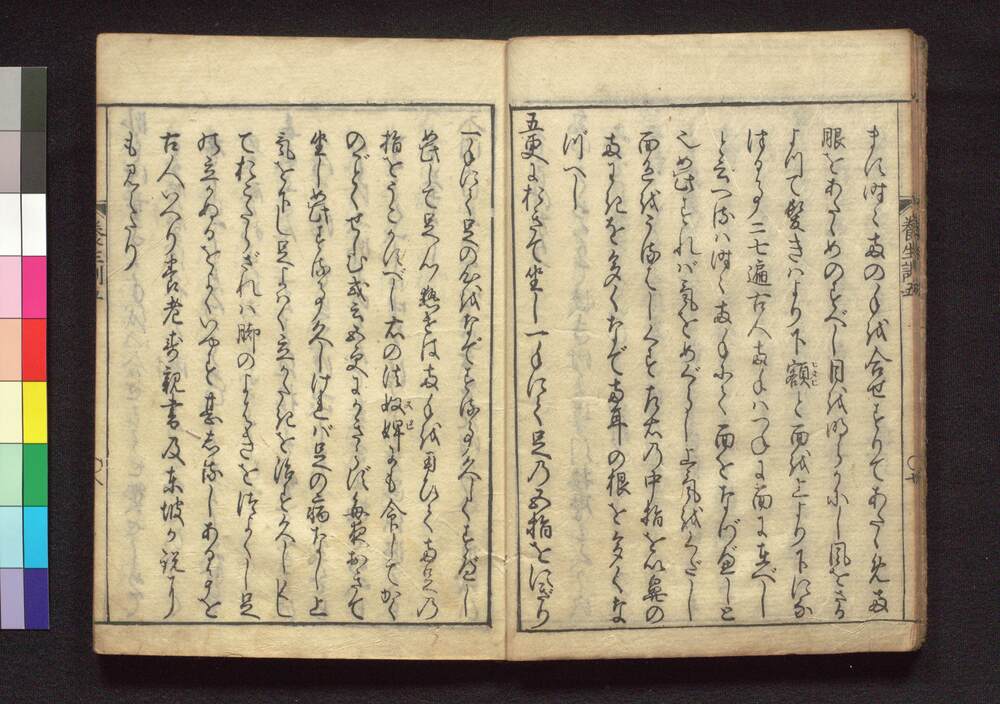 養生訓五
時々両の手を合せすりてあたゝめ両
眼をあたゝめのすべし目を明らかにし風をさる
よつて髪きはより下額と面を上より下にな
づる事二七遍古人両手はつねに面に在べし
と云へるは時々両手にて面をなづべしと
也如此すれば気をめぐらし上気をくだし
面色をうるはしくす左右の中指を以鼻の
両わきを多くなで両耳の根を多くな
づべし
五更におきて坐し一手にて足の五指をにぎり
一手にて足の心をなでさする事久しくすべし
如此して足心熱せば両手を用ひて両足の
指をうごかすべし右の法奴婢にも命じてかく
のごとくせしむ或云五更にかぎらず毎夜おきて
坐し如此する事久しければ足の病なし上
気を下し足よはく立がたきを治す久しくし
ておこたらざれば脚のよはきをつよくし足
の立かぬるをよくいやす甚しるしある事を
古人いへり養老寿親書及東坡が説に
も見えたり